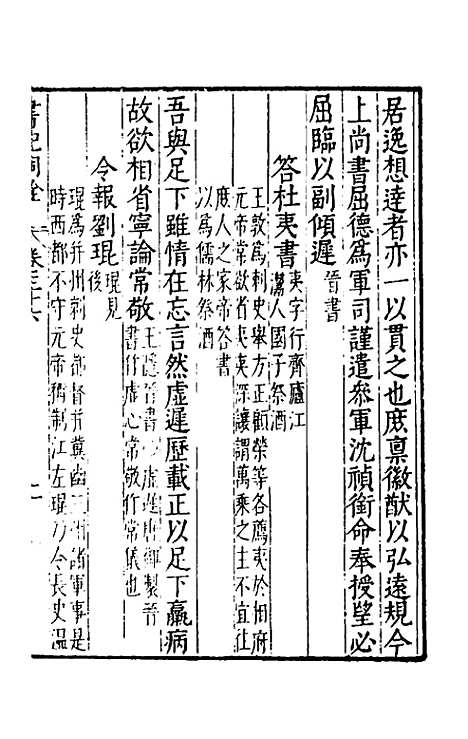 居逸想達者亦一以貫之也庶禀徽猷以弘遠規今
上尚書屈德爲軍司謹遣參軍沈禎銜命奉授望必
屈臨以副傾遲晉書
答杜夷書夷字行齊廬江
灊人國子祭酒
王敦爲刺史舉方正顧榮等各薦夷於相府
元帝常欲省夷夷深讓謂萬乘之主不宜往
庶人之家帝答書
以爲儒林祭酒
吾與足下雖情在忘言然虛遲歷載正以足下羸病
故欲相省寧論常敬王隱晉書
書作虛心常敬作常儀也
令報劉琨琨見
後
琨爲并州刺史都督并冀幽三州諸軍事是
時西都不守元帝稱制江左琨乃令長史溫